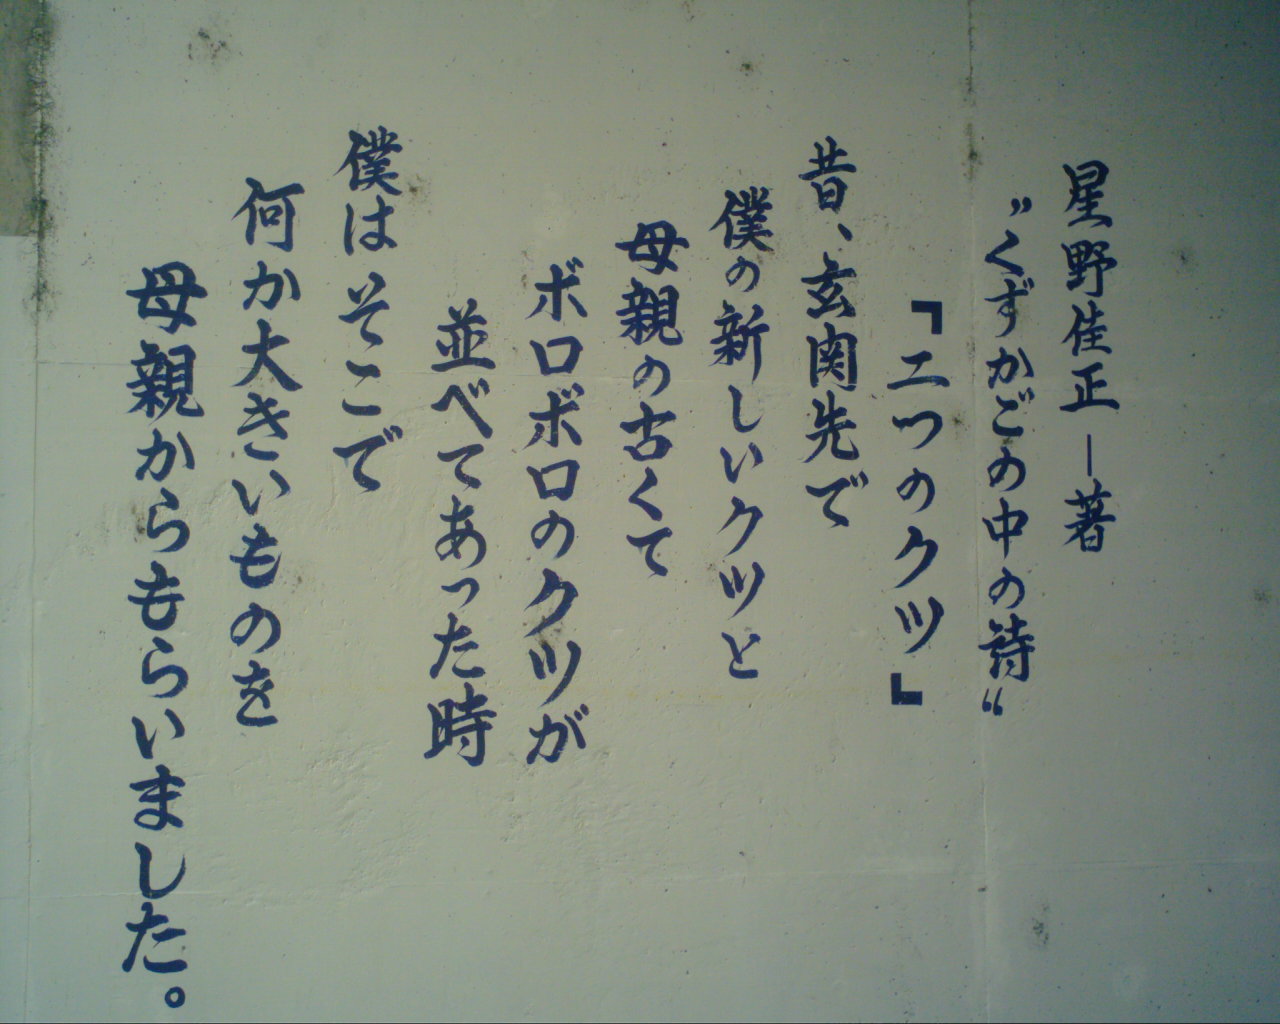 星野佳正―著
〝くずかごの中の詩〟
「二つのクツ」
昔、玄関先で
僕の新しいクツと
母親の古くて
ボロボロのクツが
並べてあった時
僕はそこで
何か大きいものを
母親からもらいました。